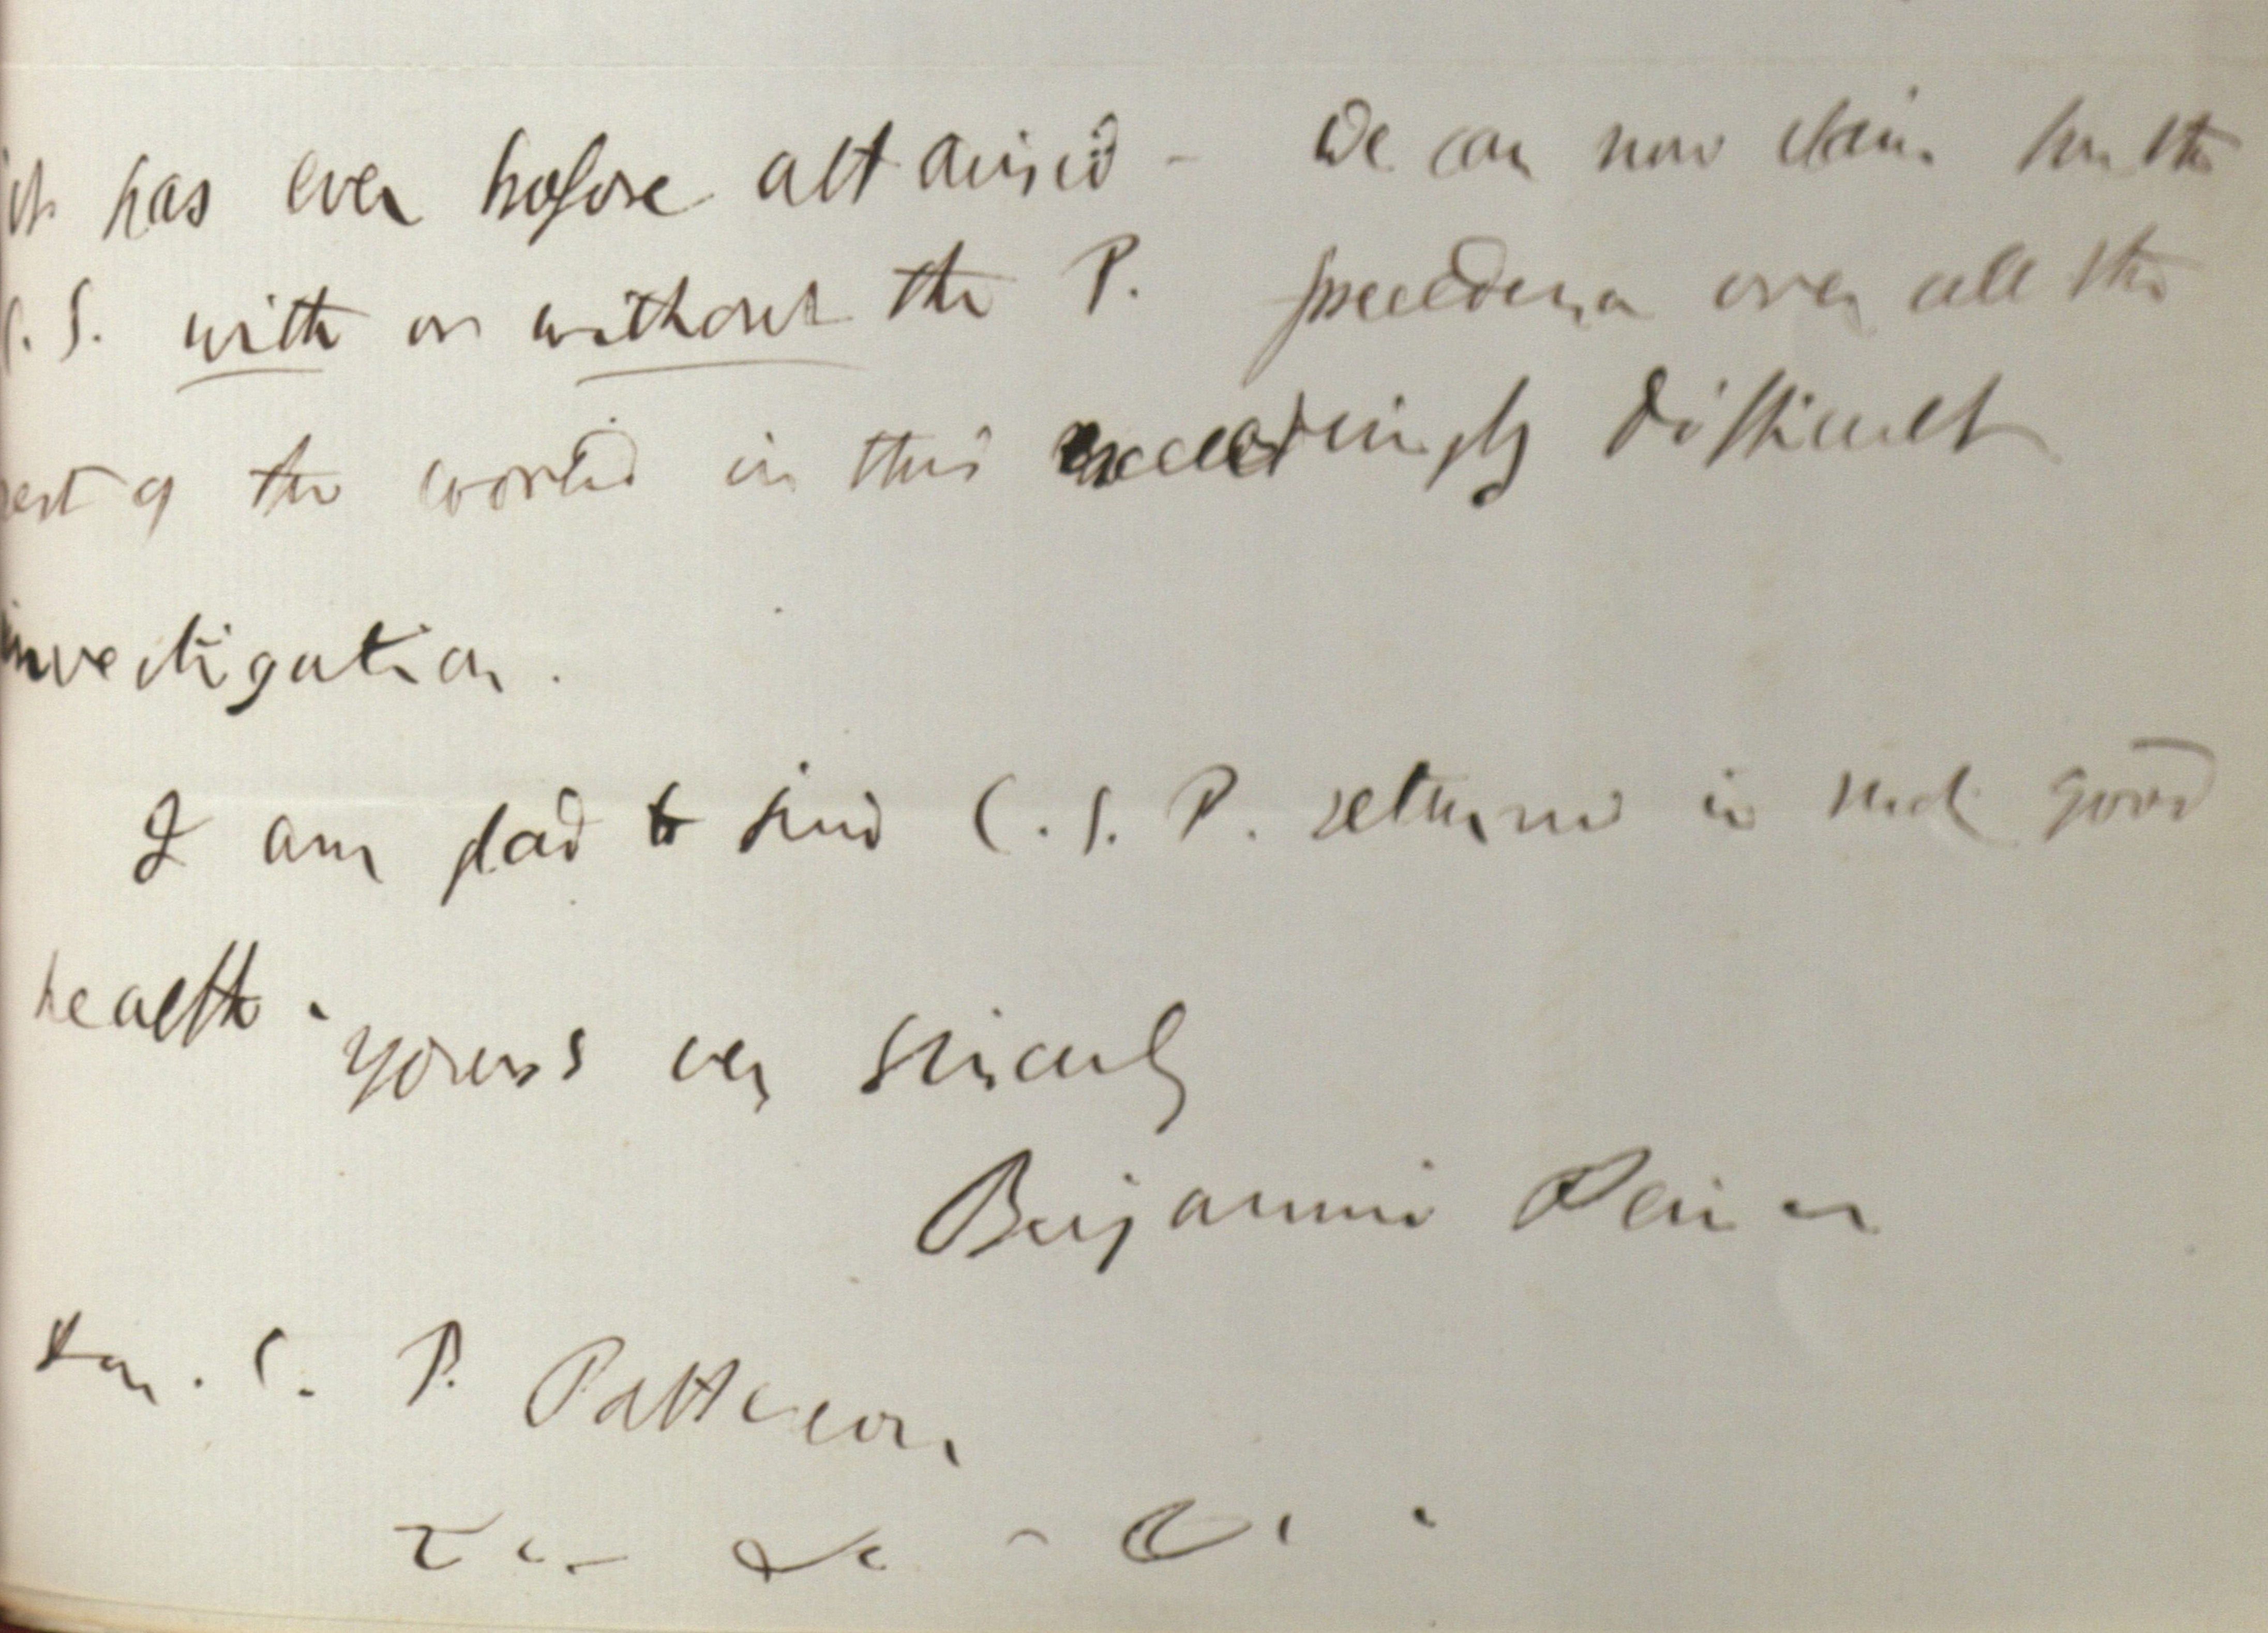 it has ever before attained - We can now claim for the
C. S. with or without the P. precedence over all the
rest of the world in this exceedingly difficult
investigation.
I am glad to find C. S. P. returned in such good
health.
Yours ever sincerely
Benjamin Peirce
Hon. C. P. Patterson